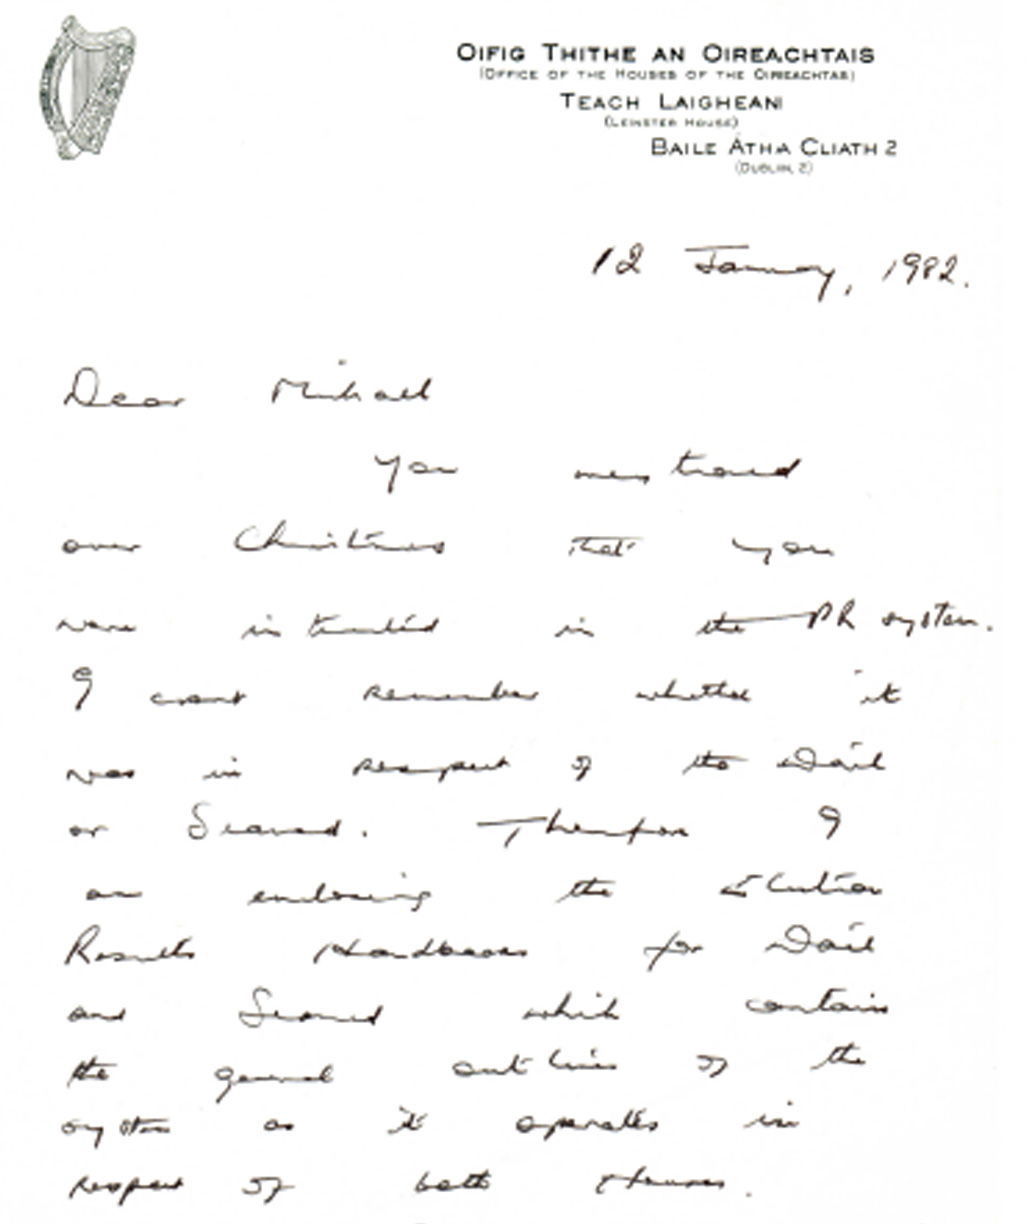 OIFIG THITHE AN OIREACHTAIS
(OFFICE OF THE HOUSES OF THE OIREACHTAS)
TEACH LAIGHEAN
(LEINSTER HOUSE)
BAILE ÁTHA CLIATH 2
(DUBLIN, 2)
12 January, 1982.
Dear Michael
You mentioned
over Christmas that you
were interested in the PR system.
I cant remember whether it
was in respect of the Dáil
or Seanad. Therefore I
am enclosing the Election
Results Handbooks for Dáil
and Seanad which contain
the general outlines of the
system as it operates in
respect of both Houses.